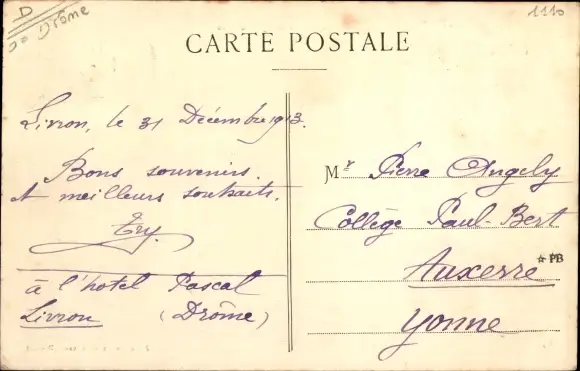 D
Drôme
1110
CARTE POSTALE
Livron, le 31 Décembre 1913.
Bons souvenirs.
et meilleurs souhaits.
Try.
à l'hotel Pascal
Livron (Drôme)
Mr Pierre Angely
Collège Paul-Bert
Auxerre
PB
Yonne